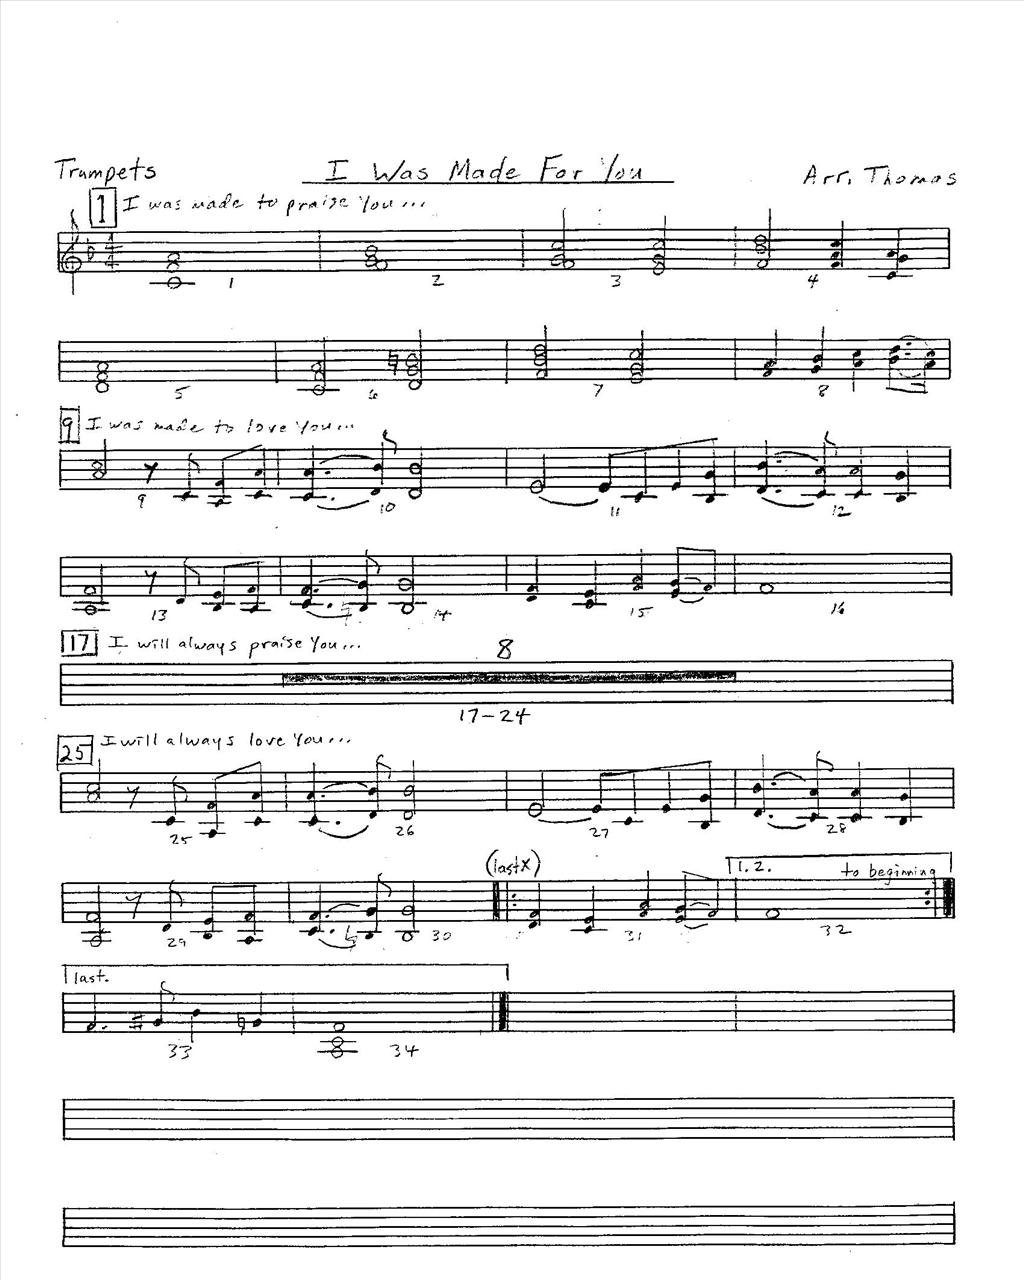 Trumpets I Was Made For You Arr. Thomas
1 I was made to praise You...
4 4
1 2 3 4
5 6 7 8
9 I was made to love You...
9 10 11 12
13 14 15 16
17 I will always praise You...
8
17-24
25 I will always love You...
25 26 27 28
(lastX) 1. 2. to beginning
29 30 31 32
last.
33 34